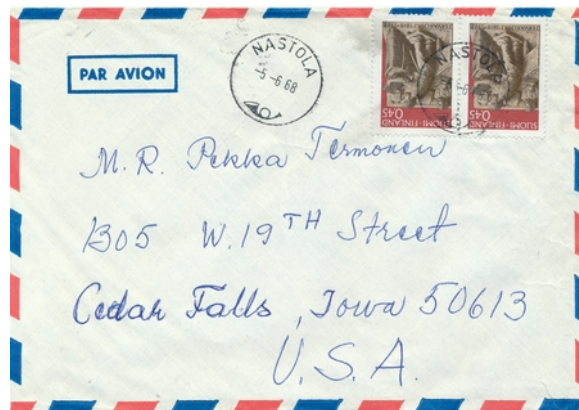 PAR AVION
NASTOLA
-5.-6.68
NASTOLA
SUOMI-FINLAND
0,45
SUOMI-FINLAND
0,45
M.R. Pekka Termonen
1305 W. 19TH Street
Cedar Falls, Iowa 50613
U.S.A.